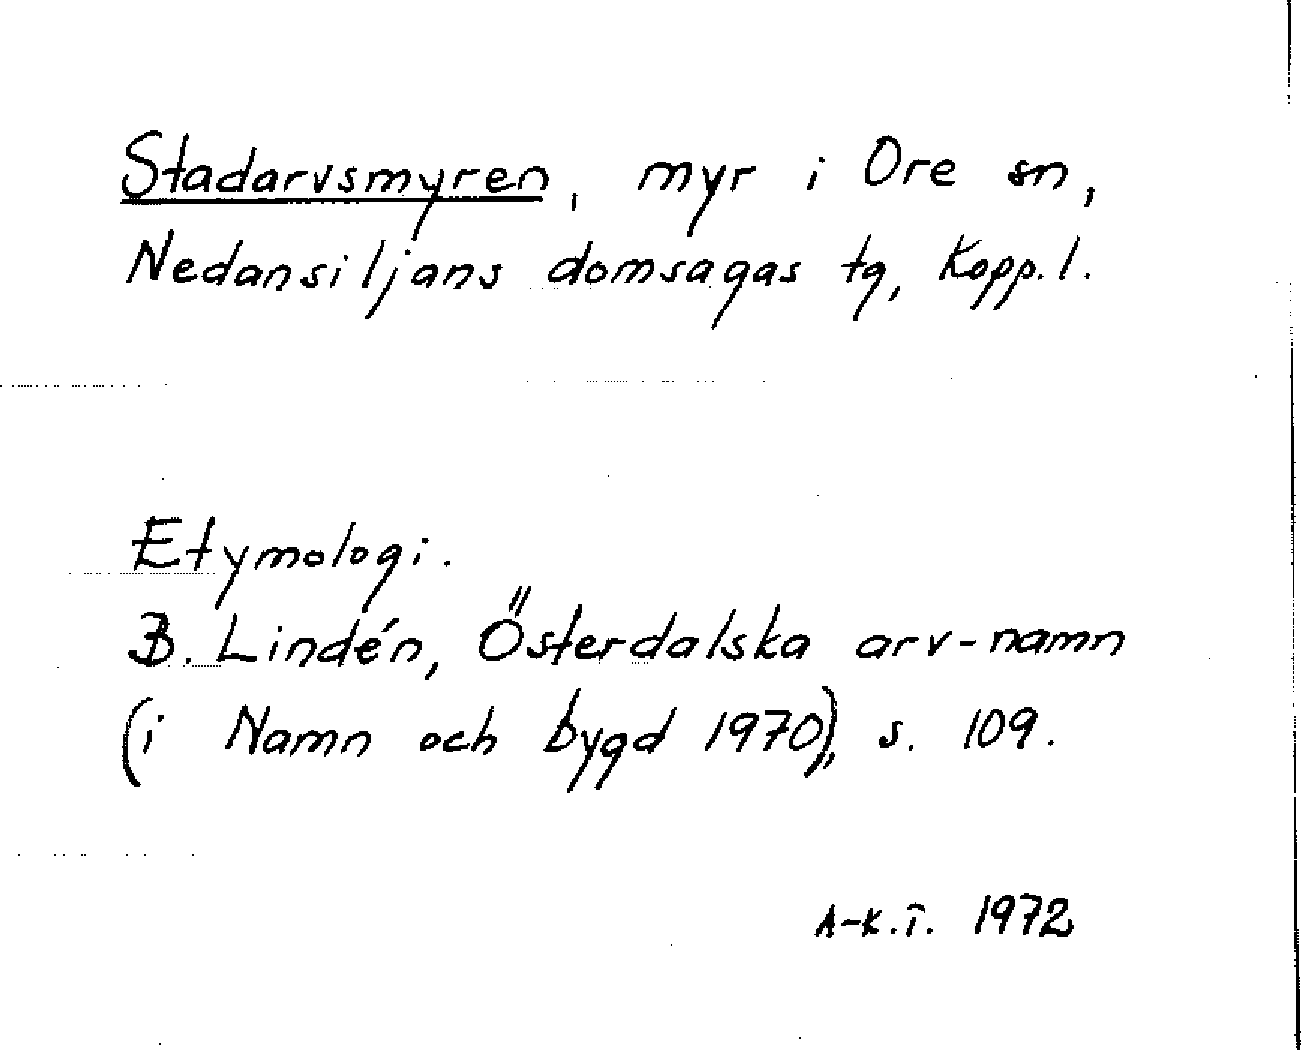 Stadarvsmyren, myr i Ore sn,
Nedansiljans domsagas tg, Kopp.l.
Etymologi.
B. Lindén, Österdalska arv-namn
(i Namn och bygd 1970), s. 109.
A-K.T. 1972